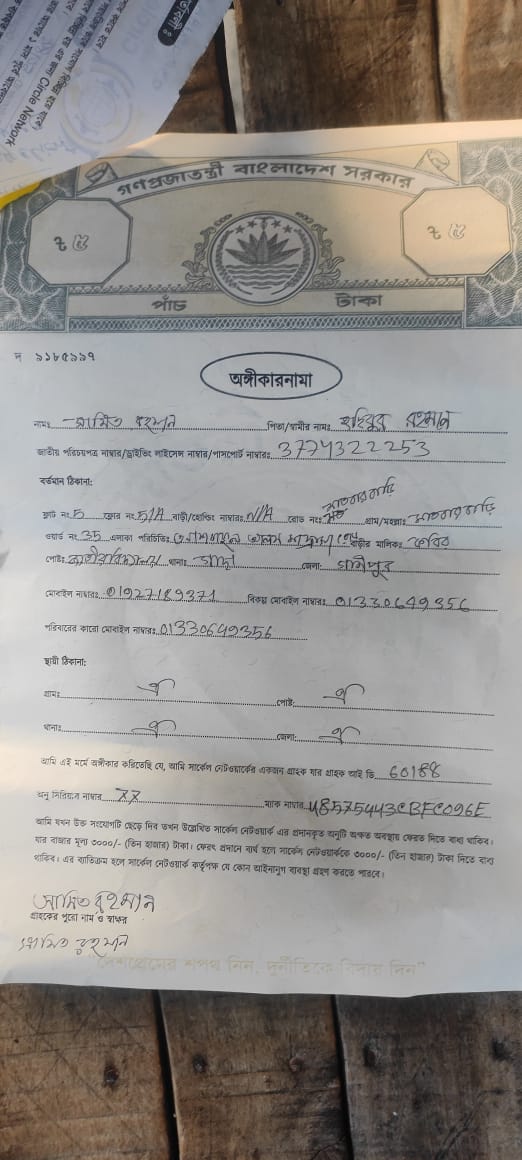 Circle Network
গণপ্রজাতন্ত্রী বাংলাদেশ সরকার
৳ ৫ ৳ ৫
পাঁচ টাকা
অঙ্গীকারনামা
নামঃ রহমান পিতা/স্বামীর নামঃ রহমান
জাতীয় পরিচয়পত্র নাম্বার/ড্রাইভিং লাইসেন্স নাম্বার/পাসপোর্ট নাম্বারঃ 3774322253
বর্তমান ঠিকানা:
ফ্লাট নং 5 ফ্লোর নং 5/A বাড়ী/হোল্ডিং নাম্বারঃ N/A রোড নংঃ গ্রাম/মহল্লাঃ
ওয়ার্ড নং 35 এলাকা পরিচিতিঃ বাড়ীর মালিকঃ কবির
পোষ্টঃ জাতীয়বিদ্যালয় থানাঃ গাছা জেলাঃ গাজীপুর
মোবাইল নাম্বারঃ 01927189371 বিকল্প মোবাইল নাম্বারঃ 01330649356
পরিবারের কারো মোবাইল নাম্বারঃ 01330649356
স্থায়ী ঠিকানা:
গ্রামঃ ঐ পোষ্টঃ ঐ
থানাঃ ঐ জেলাঃ ঐ
আমি এই মর্মে অঙ্গীকার করিতেছি যে, আমি সার্কেল নেটওয়ার্কের একজন গ্রাহক যার গ্রাহক আই ডি 60188
অনু সিরিয়াল নাম্বার XX ম্যাক নাম্বার 48575443CBFC096E
আমি যখন উক্ত সংযোগটি ছেড়ে দিব তখন উল্লেখিত সার্কেল নেটওয়ার্ক এর প্রদানকৃত অনুটি অক্ষত অবস্থায় ফেরত দিতে বাধ্য থাকিব।
যার বাজার মূল্য ৩০০০/- (তিন হাজার) টাকা। ফেরৎ প্রদানে ব্যর্থ হলে সার্কেল নেটওয়ার্ককে ৩০০০/- (তিন হাজার) টাকা দিতে বাধ্য
থাকিব। এর ব্যতিক্রম হলে সার্কেল নেটওয়ার্ক কর্তৃপক্ষ যে কোন আইনানুগ ব্যবস্থা গ্রহণ করতে পারবে।
রহমান
গ্রাহকের পুরো নাম ও স্বাক্ষর
রহমান
"দেশপ্রেমের শপথ নিন, দুর্নীতিকে বিদায় দিন"